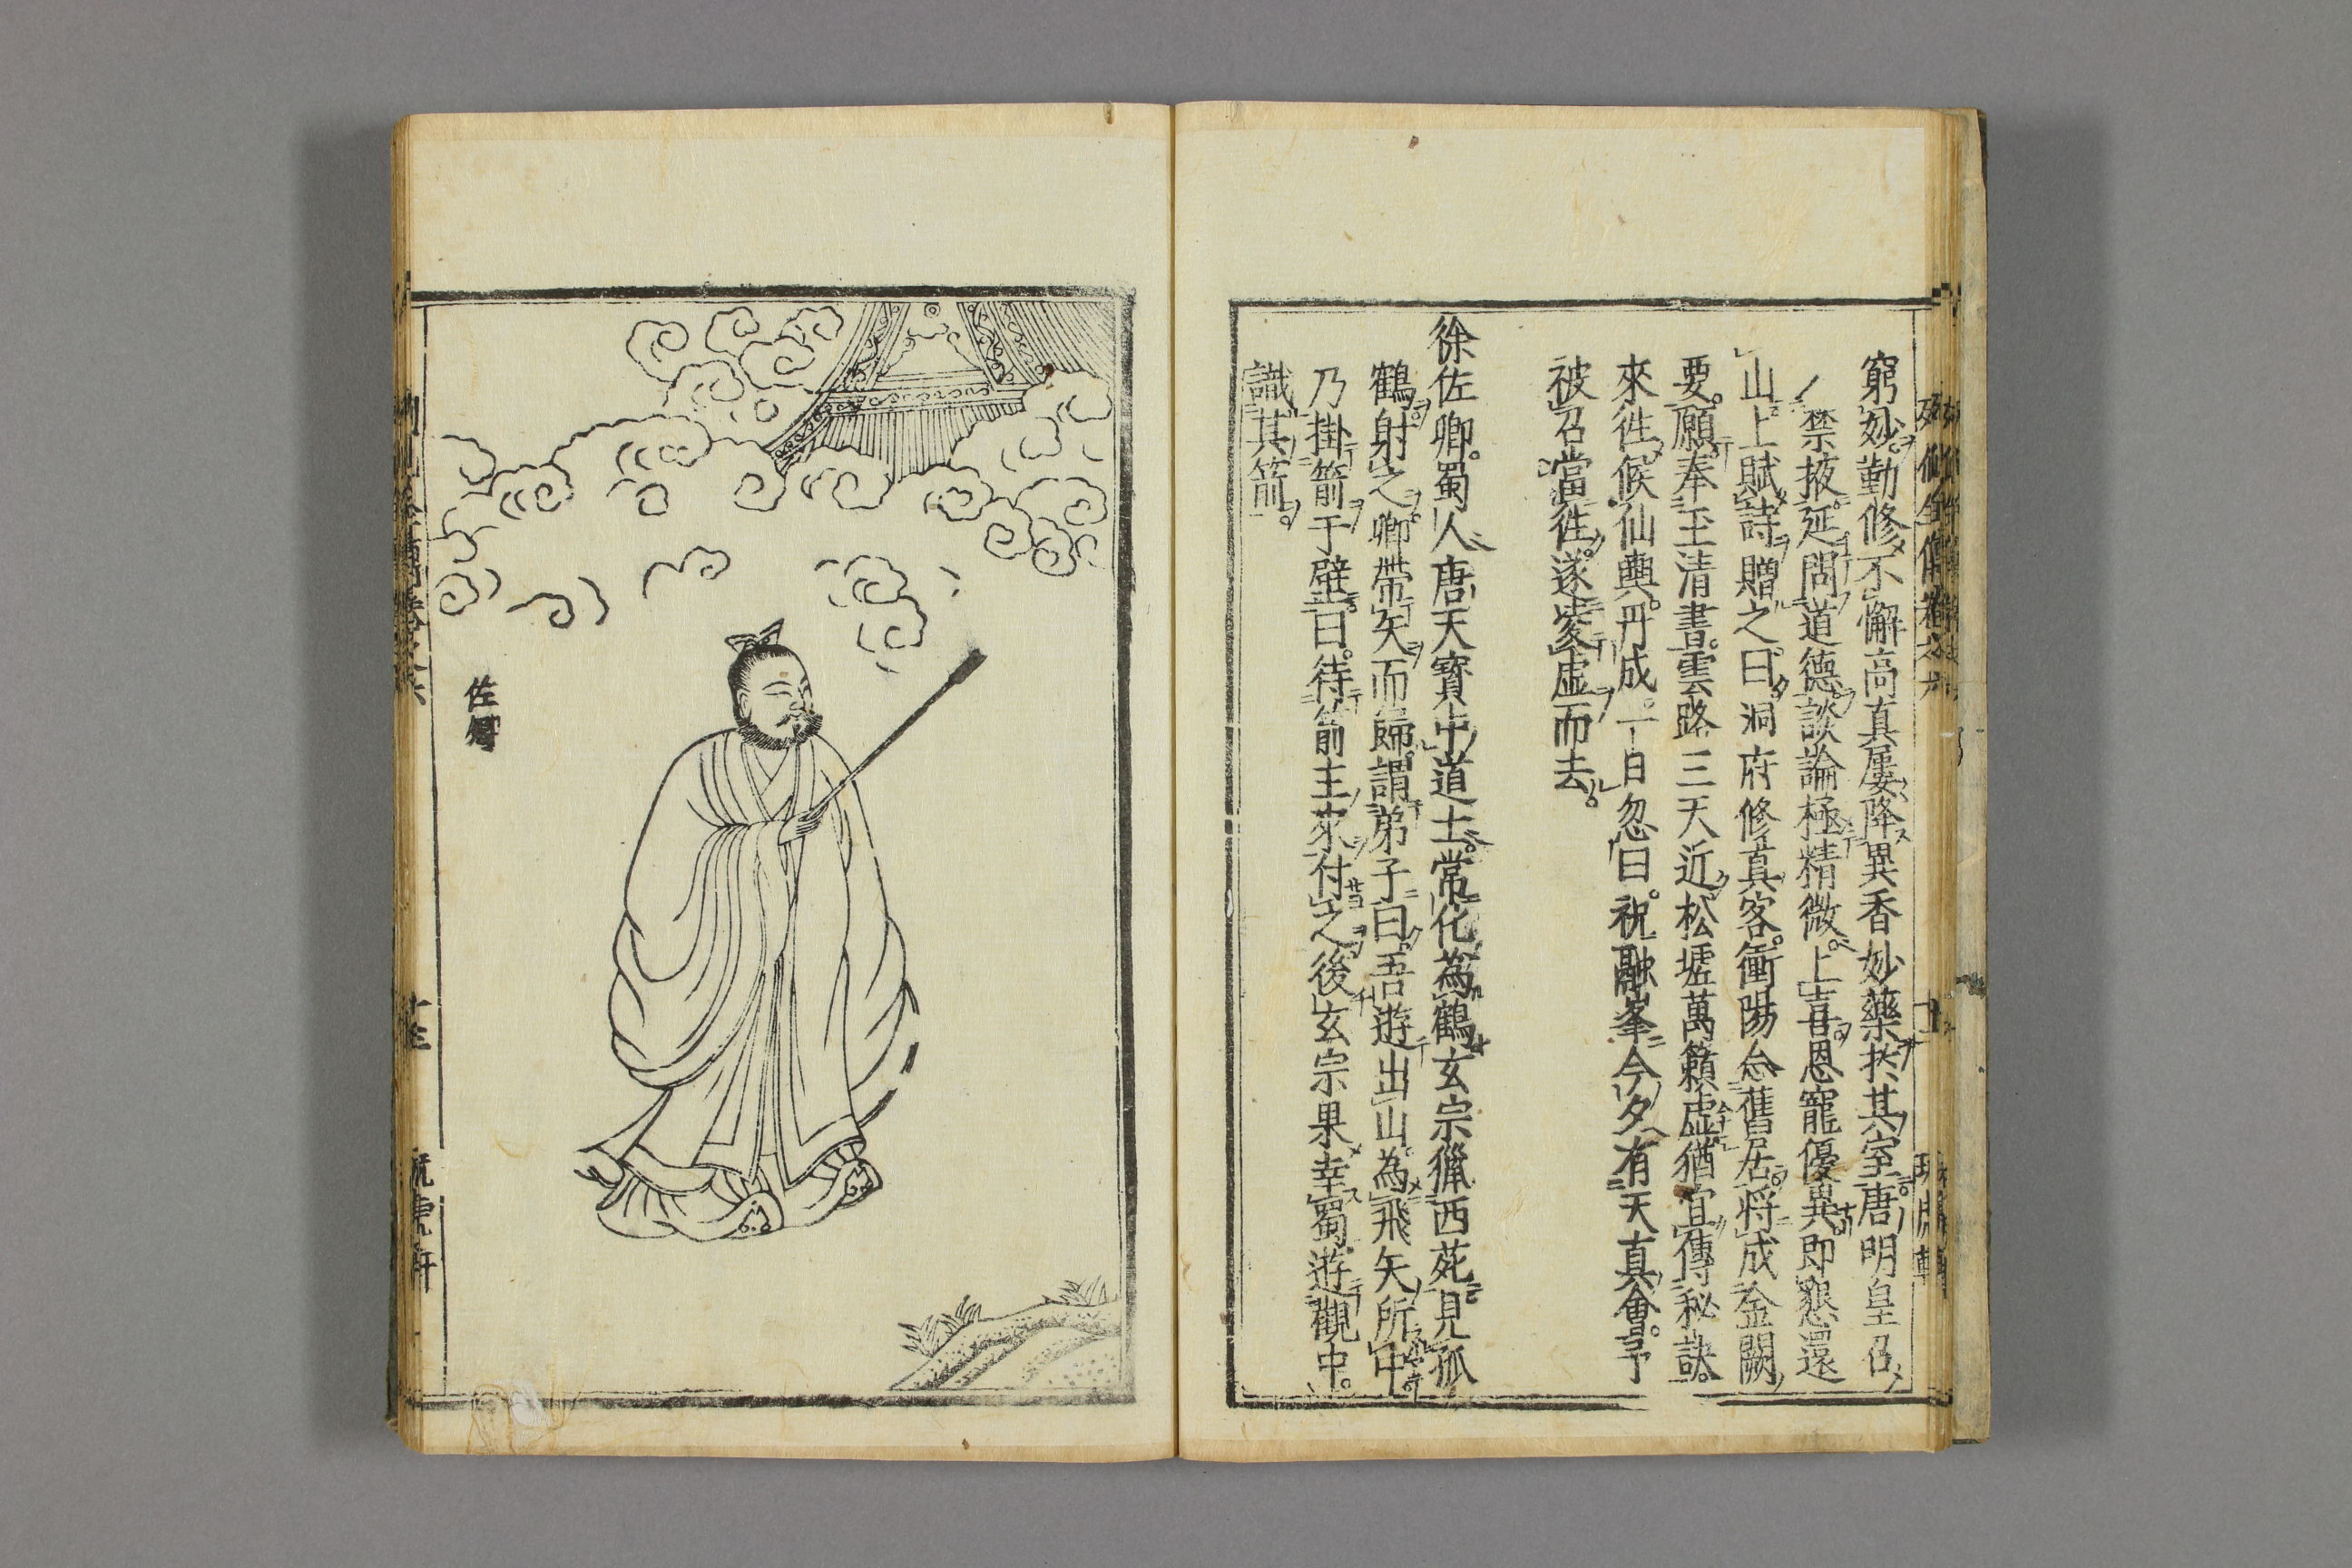 列仙全傳卷之六
窮妙。勤修不懈高真屢降異香妙藥扵其室。唐明皇召
入禁掖。延問道德。談論極精微。上喜恩寵優異。即懇還
山上賦詩贈之。曰。洞府修真客。衡陽念舊居。將成金闕
要。願奉玉清書。雲路三天近松墟萬籟虛猶宜傳秘訣。
來徃候仙輿。丹成。一日忽曰。祝融峯今夕有天真會。予
被召當徃。遂凌虛而去。
徐佐卿。蜀人唐天寶中道士。常化為鶴玄宗獵西苑見孤
鶴。射之。卿帶矢而歸。謂弟子曰。吾遊出山。為飛矢所中。
乃掛箭于壁。曰。待箭主來付之後玄宗果幸蜀。遊觀中。
識其箭。
佐卿
十三
玩虎軒